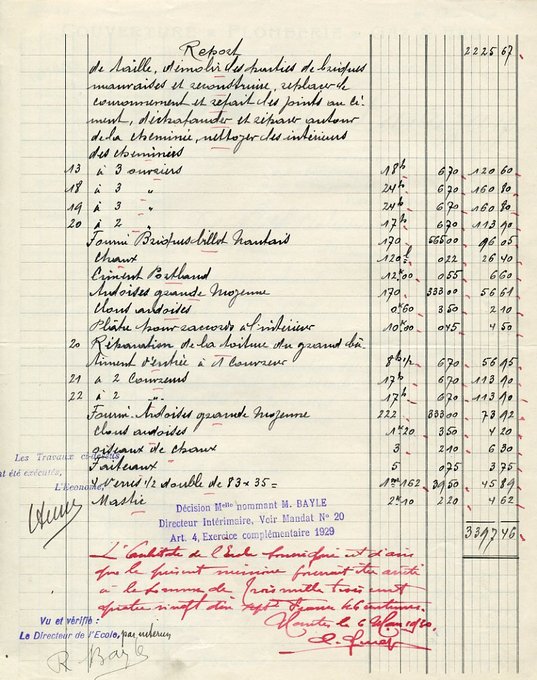 Report 22225 67
de taille, démolir des parties de briques
mauvaises et reconstruire, replacer le
couronnement et refait des joints au ci-
ment, déchafauder et réparer autour
de la cheminée, nettoyer des intérieurs
des cheminées
13 à 3 ouvriers 18h 670 120 60
18 à 3 " 24h 670 160 80
19 à 3 " 24h 670 160 80
20 à 2 " 17h 670 113 90
Fourni Briques billot Nantais 170 565 00 96 05
Chaux 120l 022 26 40
Ciment Portland 12k00 055 6 60
Ardoises grande Moyenne 170 333 00 56 61
Clous ardoises 0k60 350 2 10
Plâtre pour raccords à l'intérieur 10k00 045 4 50
20 Réparation de la toiture du grand bâ-
timent d'entrée à 1 Couvreur 8h 1/2 670 56 95
21 à 2 Couvreurs 17h 670 113 90
22 à 2 " 17h 670 113 90
Fourni Ardoises grande Moyenne 222 333 00 73 92
Clous ardoises 1k20 350 4 20
de chaux 3 210 6 30
Faiteaux 5 075 3 75
4 Verres 1/2 double de 83 x 35 = 1m162 3950 45 89
Mastic 2k10 220 4 62
3397 46
Les Travaux ci-dessus
ont été exécutés,
L'Econome,
Décision Melle nommant M. BAYLE
Directeur Intérimaire, Voir Mandat No 20
Art. 4, Exercice complémentaire 1929
L'Architecte de l'Ecole soussigné est d'avis
que le présent mémoire pourrait être arrêté
à la somme de Trois mille trois cent
quatre vingt dix sept Francs 46 centimes.
Nantes le 6 Mai 1930.
Vu et vérifié :
Le Directeur de l'Ecole, par intérim
R Bayle